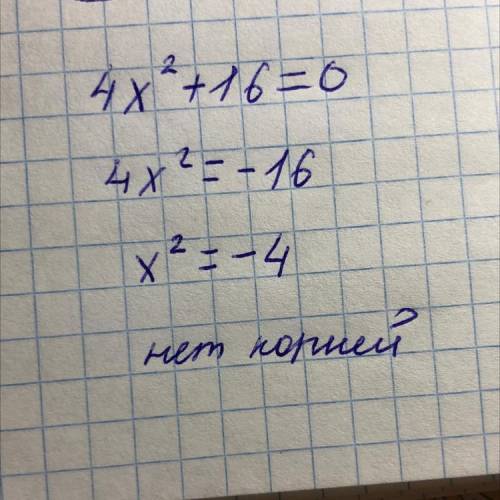 4x² + 16 = 0
4x² = -16
x² = -4
нет корней